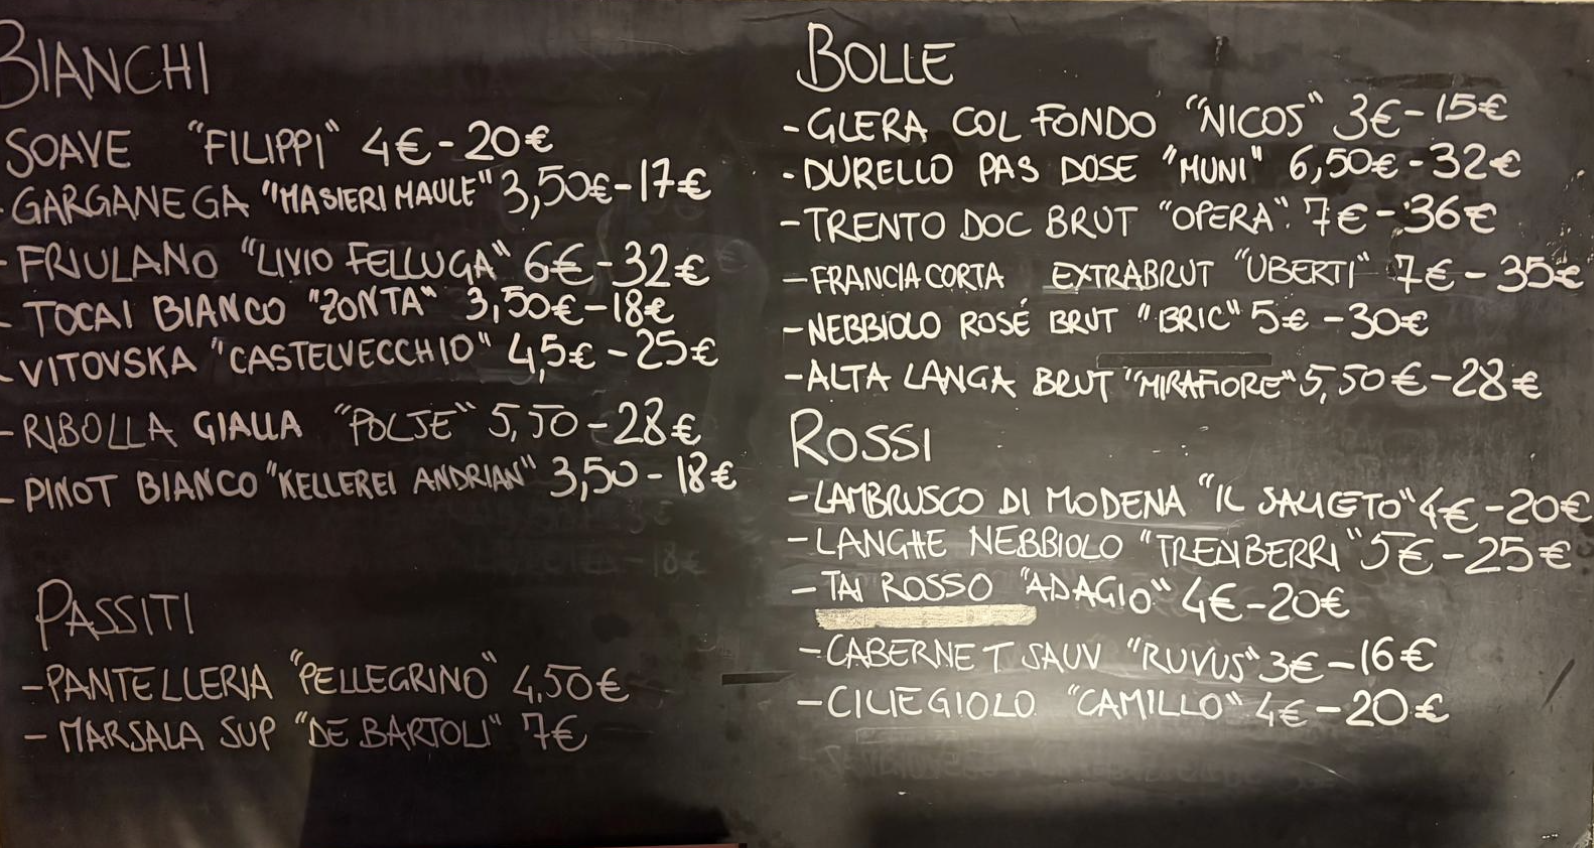 BIANCHI
SOAVE "FILIPPI" 4€-20€
-GARGANEGA "MASIERI MAULE" 3,50€-17€
-FRIULANO "LIVIO FELLUGA" 6€-32€
-TOCAI BIANCO "ZONTA" 3,50€-18€
-VITOVSKA "CASTELVECCHIO" 4,5€-25€
-RIBOLLA GIALLA "POLJE" 5,50-28€
-PINOT BIANCO "KELLEREI ANDRIAN" 3,50-18€
PASSITI
-PANTELLERIA "PELLEGRINO" 4,50€
-MARSALA SUP "DE BARTOLI" 7€
BOLLE
-GLERA COL FONDO "NICOS" 3€-15€
-DURELLO PAS DOSE "MUNI" 6,50€-32€
-TRENTO DOC BRUT "OPERA" 7€-36€
-FRANCIACORTA EXTRABRUT "UBERTI" 7€-35€
-NEBBIOLO ROSÉ BRUT "BRIC" 5€-30€
-ALTA LANGA BRUT "MIRAFIORE" 5,50€-28€
ROSSI
-LAMBRUSCO DI MODENA "IL SALICETO" 4€-20€
-LANGHE NEBBIOLO "TREDIBERRI" 5€-25€
-TAI ROSSO "ADAGIO" 4€-20€
-CABERNET SAUV "RUVUS" 3€-16€
-CILIEGIOLO "CAMILLO" 4€-20€